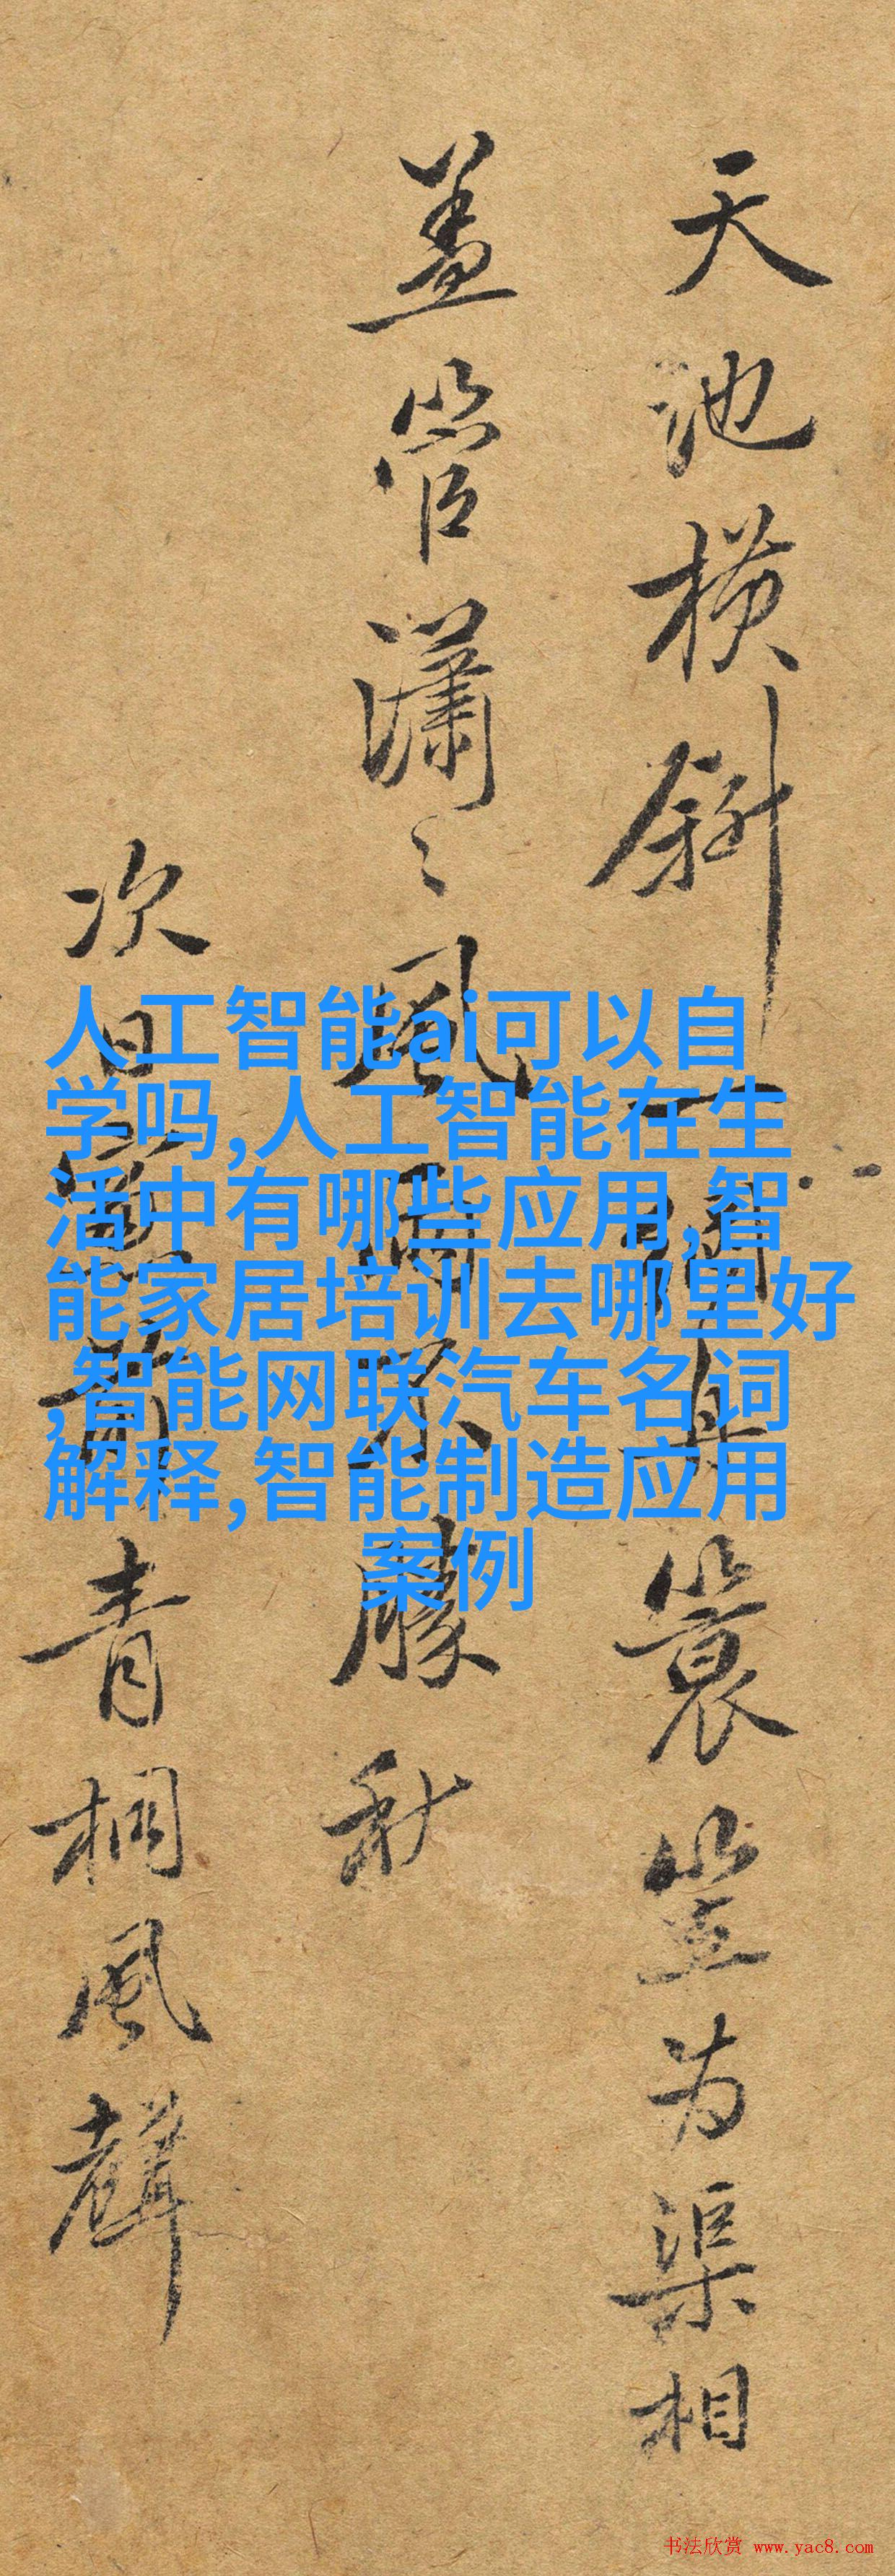 天池橫斜一具簑笠为渠相
盖管瀟〻風雨不勝秋
次日青桐風聲
人工智能ai可以自
学吗,人工智能在生
活中有哪些应用,智
能家居培训去哪里好
,智能网联汽车名词
解释,智能制造应用
案例
书法欣赏 www.yac8.com